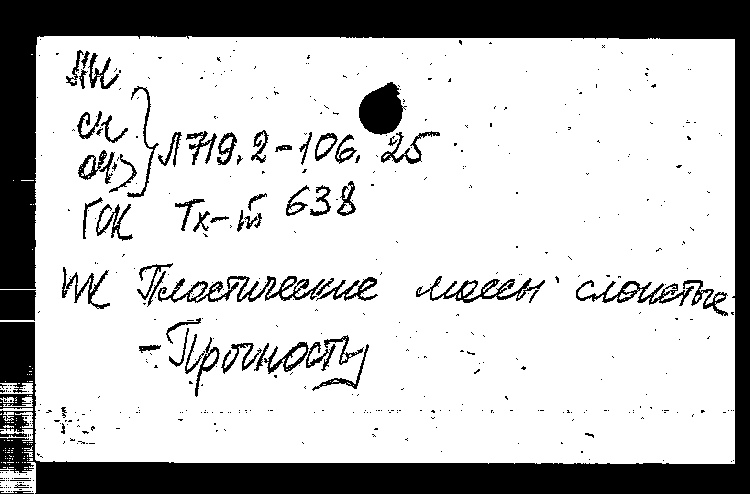 сн
Л719.2-106. 25
ГСК Тх-т 638
ПК Пластические массы слоистые
-Прочность